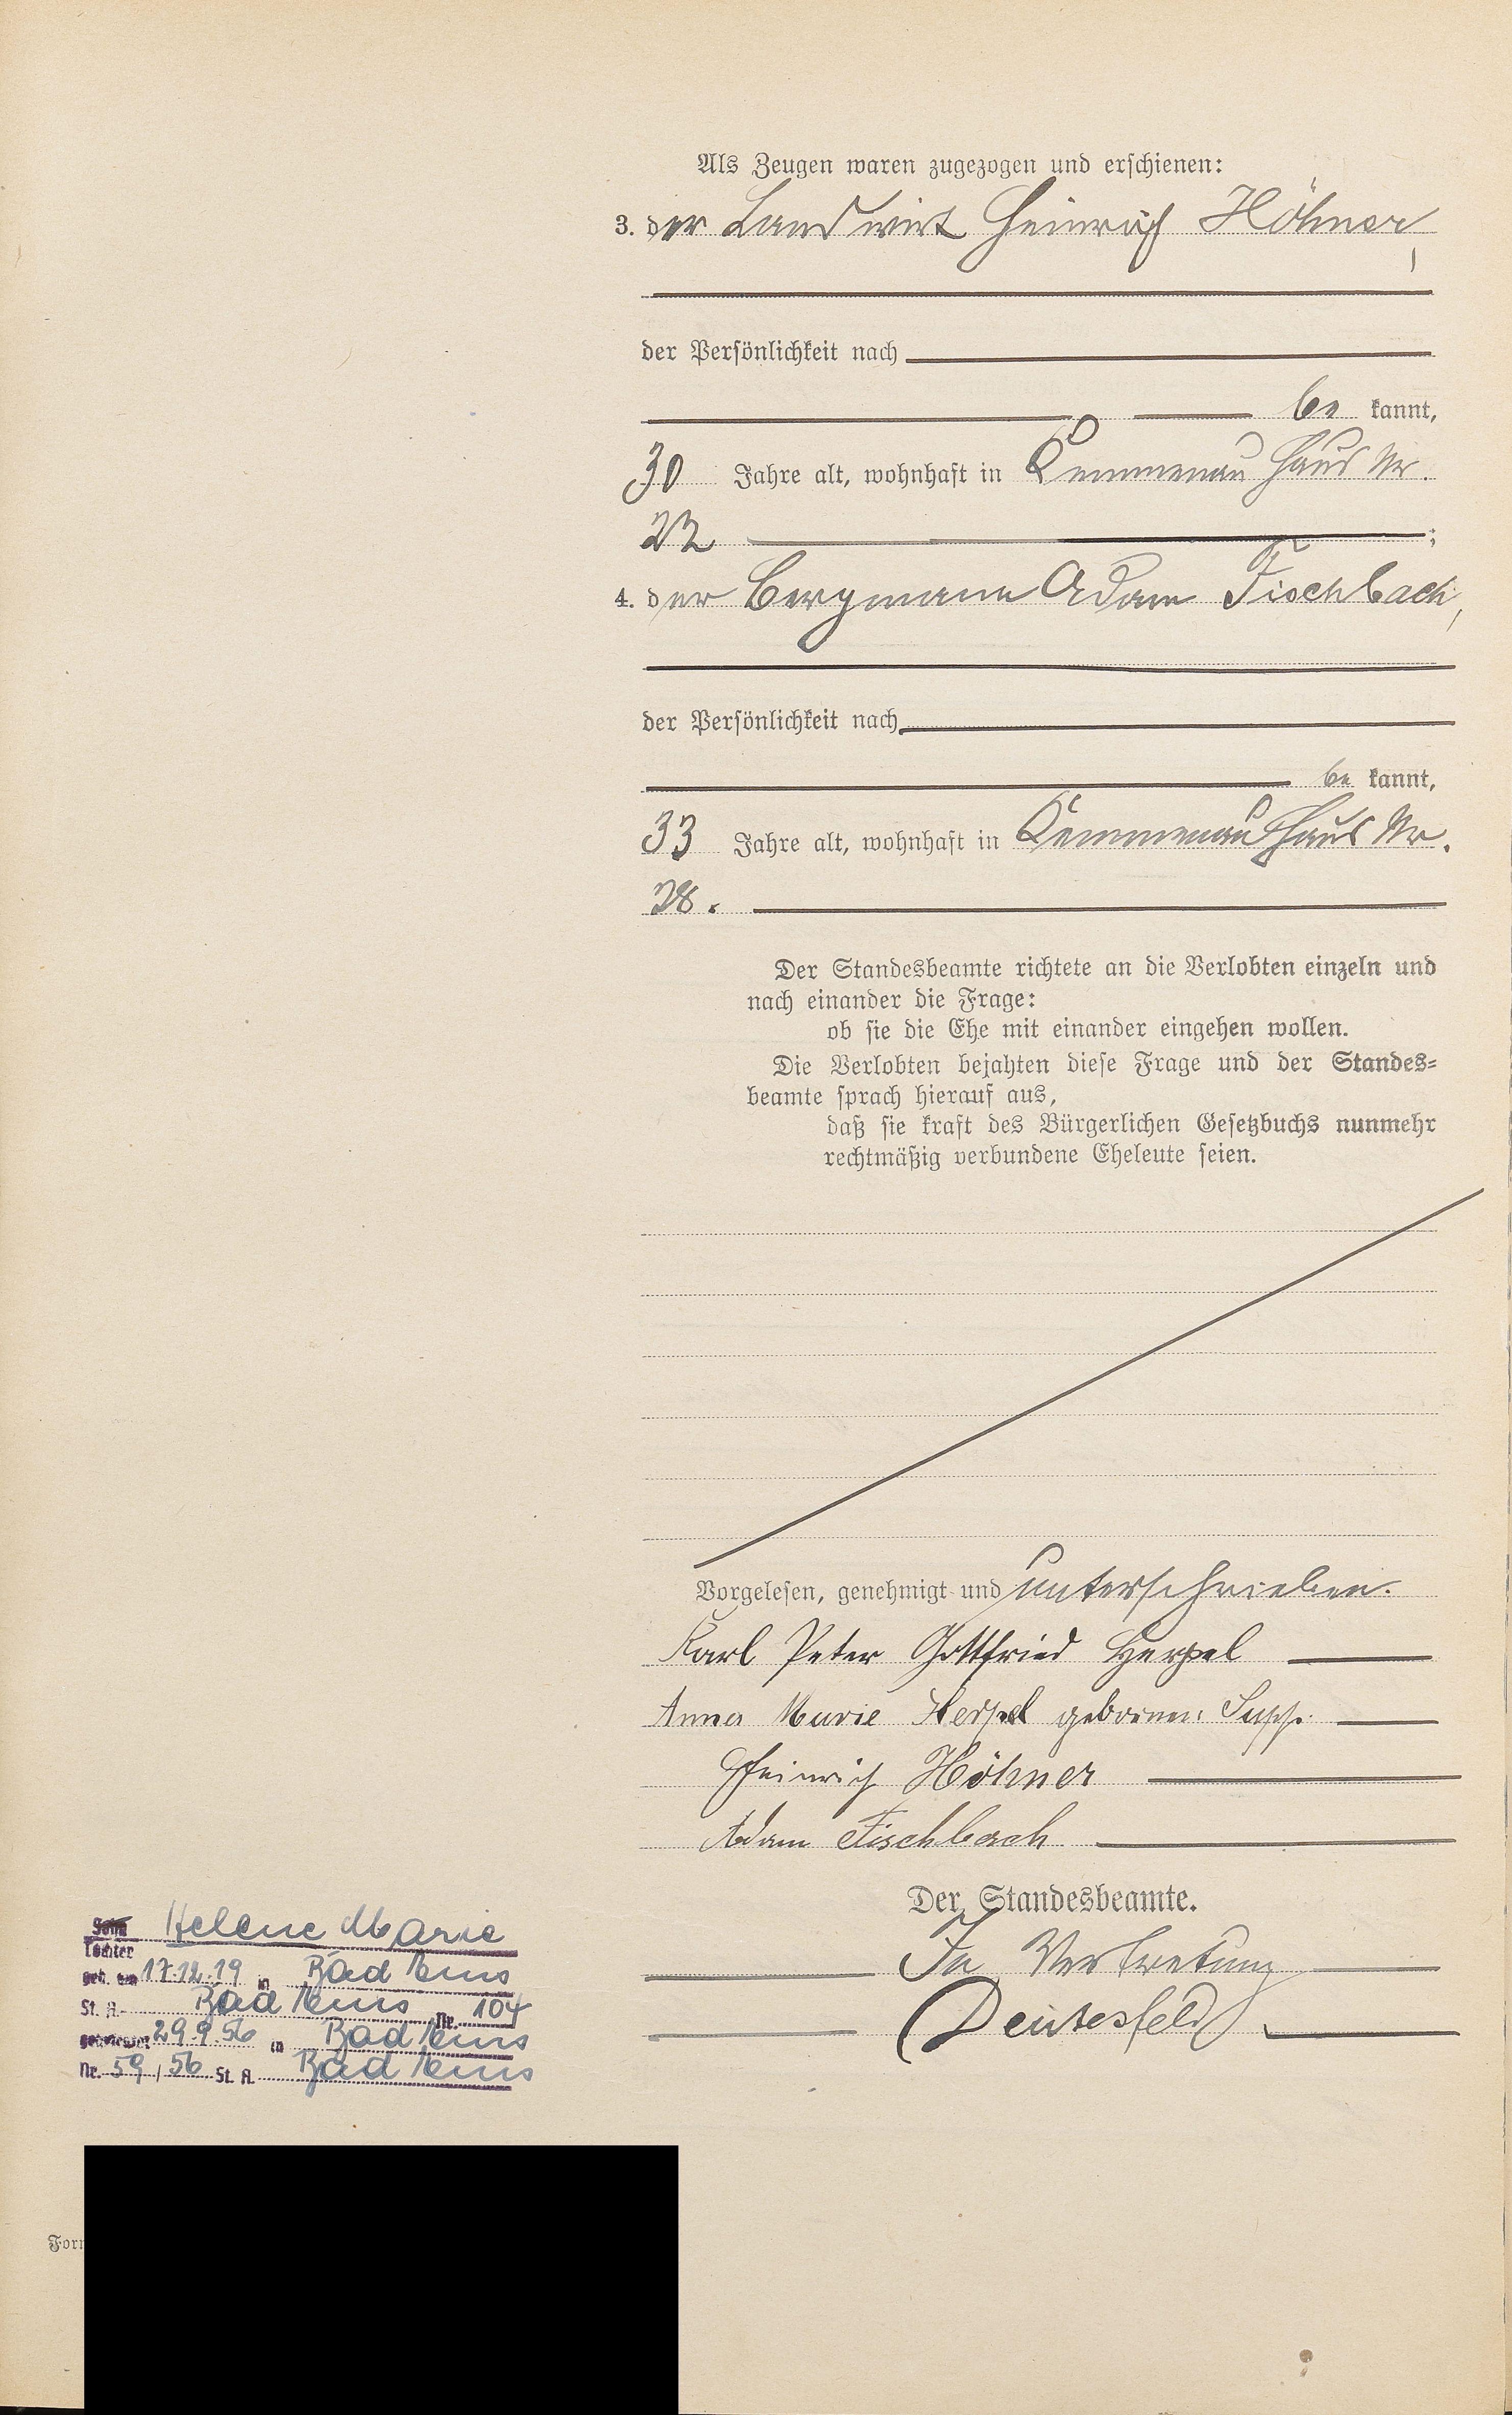 Als Zeugen waren zugezogen und erschienen:
3. der Landwirt Heinrich Höhner,
der Persönlichkeit nach
be kannt,
30 Jahre alt, wohnhaft in Kemmenau Haus Nr.
22 ;
4. der Bergmann Adam Fischbach,
der Persönlichkeit nach
be kannt,
33 Jahre alt, wohnhaft in Kemmenau Haus Nr.
28.
Der Standesbeamte richtete an die Verlobten einzeln und
nach einander die Frage:
ob sie die Ehe mit einander eingehen wollen.
Die Verlobten bejahten diese Frage und der Standes-
beamte sprach hierauf aus,
daß sie kraft des Bürgerlichen Gesetzbuchs nunmehr
rechtmäßig verbundene Eheleute seien.
Vorgelesen, genehmigt und unterschrieben.
Karl Peter Gottfried Herpel
Anna Marie Herpel geborene
Heinrich Höhner
Adam Fischbach
Der Standesbeamte.
In Vertretung
Deutesfeld
Sohn Helene Marie
Tochter
geb. am 17.12.19 in Bad Ems
St. A. Bad Ems Nr. 104
geheiratet 29.9.56 in Bad Ems
Nr. 59/56 St. A. Bad Ems
Form